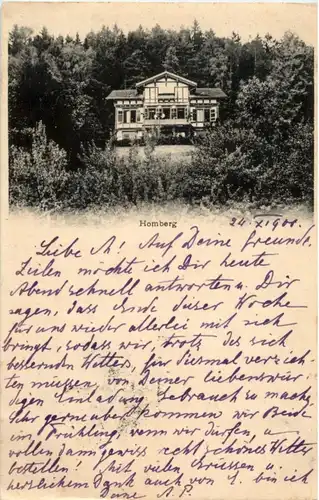 Homberg
24. XI. 1900.
Liebe A! Auf Deine freundl.
Zeilen möchte ich Dir heute
Abend schnell antworten u. Dir
sagen, dass Ende dieser Woche
für uns wieder allerlei mit sich
bringt, sodass wir, trotz des sich
bessernden Wetters, für diesmal verzich-
ten müssen, von Deiner liebenswür-
digen Einladung Gebrauch zu machen.
Sehr gerne aber kommen wir Beide
im Frühling, wenn wir dürfen, u.
wollen dann gewiss recht schönes Wetter
bestellen! Mit vielen Grüssen u.
herzlichem Dank auch von bin ich
Deine A. P.